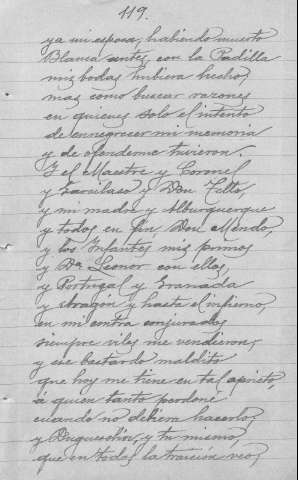 119.
ya mi esposa, habiendo muerto
Blanca antes, con la Padilla
mis bodas hubiera hecho,
mas como buscar razones
en quienes solo el intento
de ennegrecer mi memoria
y de ofenderme tuvieron.
Y el Maestre y Coronel
y Garcilaso y Don Tello,
y mi madre y Alburquerque
y todos en fin, Don Mendo,
y los Infantes mis primos
y Dª Leonor con ellos,
y Portugal y Granada
y Aragón y hasta el infierno,
en mi contra conjurados
siempre viles me vendieron,
y ese bastardo maldito
que hoy me tiene en tal aprieto,
á quien tanto perdoné
cuando no debiera hacerlo,
y Duguesclin, y tu mismo,
que en todos la traición veo,